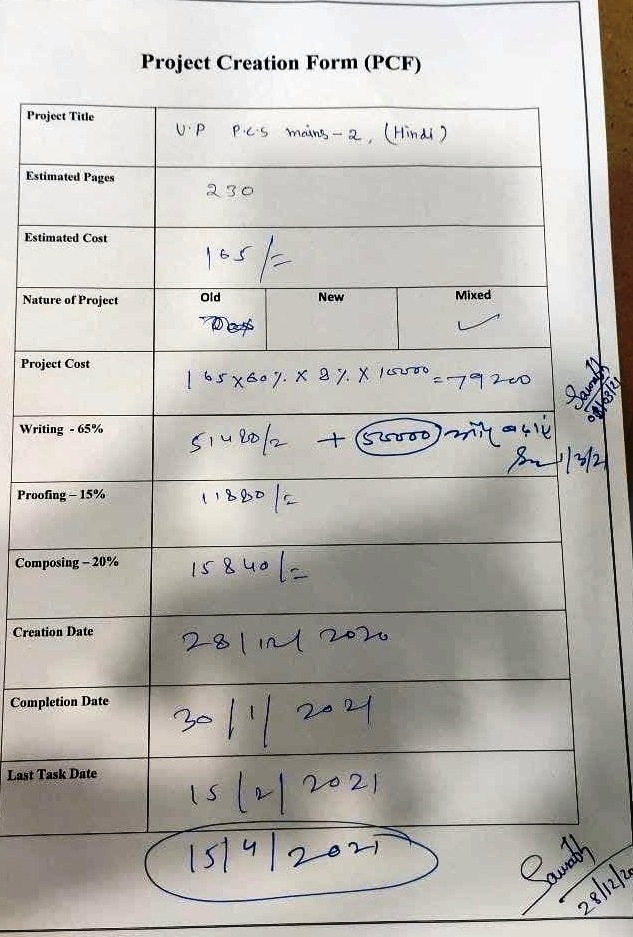 Project Creation Form (PCF)
Project Title
U.P P.C.S mains-2, (Hindi)
Estimated Pages
230
Estimated Cost
165/=
Nature of Project
Old New Mixed
✓
Project Cost
165x60%. X 8%. X 10000 = 79200
Writing - 65%
51480/= + 50000 और बढ़ाएं
1/3/21
Proofing – 15%
11880/=
Composing – 20%
15840/=
Creation Date
28/12/2020
Completion Date
30/1/2021
Last Task Date
15/2/2021
15/4/2021
Saurabh
28/12/20
Saurabh